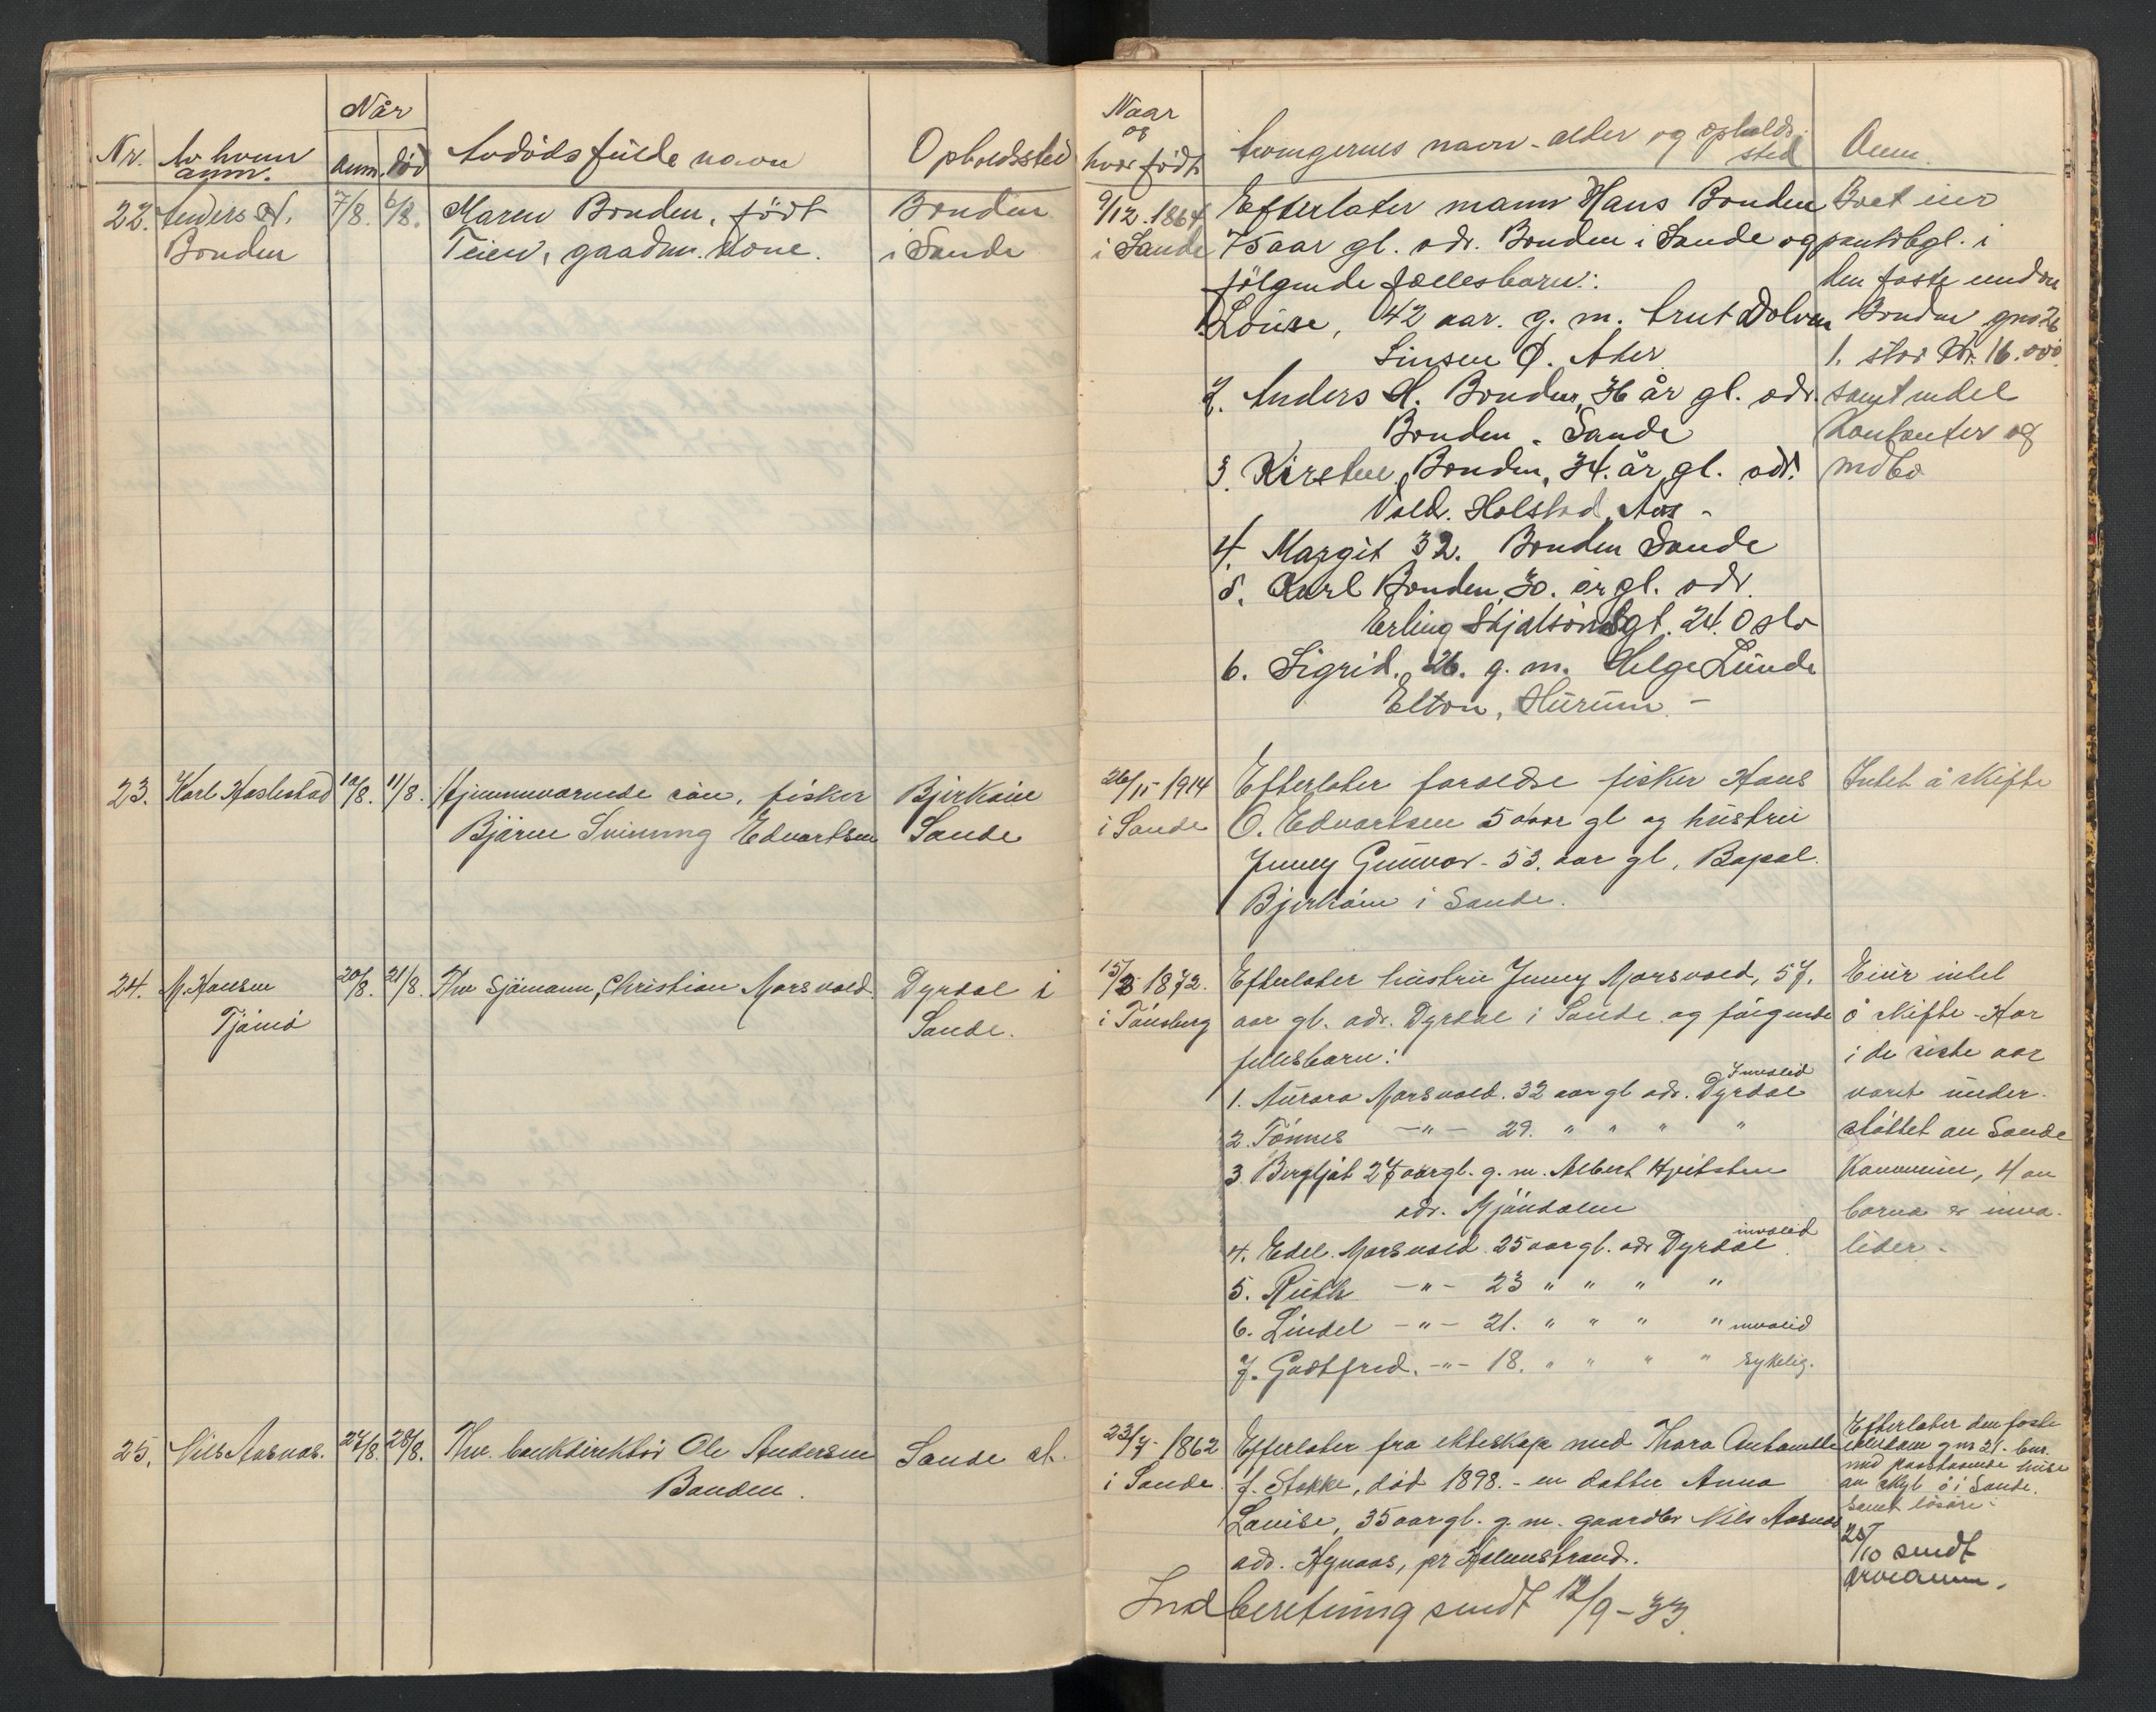 Når
Nr. Av hvem anm. Anm. död Avdödes fulde navn Opholdssted
22. Anders H. 7/8. 6/8. Maren Bonden, födt Bonden
Bonden Teien, gaardm. kone. i Sande
23. Karl Haslestad 12/8. 11/8. Hjemmeværende sön, fisker Bjerköien
Bjarne Svinning Edvartsen Sande
24. M. Hansen 20/8. 21/8. Fhv Sjömann, Christian Marsvold. Dyrdal i
Tjömö Sande.
25. Nils Aasnæs. 27/8. 28/8. Fhv. bankdirektör Ole Andersen Sande st.
Bonden.
Naar
og
hvor født Arvingernes navn - alder og opholds-
sted Anm.
9/12. 1864 Efterlater mann Hans Bonden Boet eier
i Sande 75 aar gl. adr. Bonden i Sande og pantobgl. i
fölgende fællesbarn: den faste eiendom
1. Louise, 42 aar. g. m. Bonden gno 26
1. stor Kr. 16.000
2. Anders H. Bonden, 36 år gl. adr. samt endel
Bonden. Sande kontanter og
3. Kirsten Bonden, 34. år gl. adr. indbo
Holstad, Aas -
4. Margit 32. Bonden Sande
5. Karl Bonden, 30. år gl. adr.
Erling Skjalsönsgt. 24. Oslo
6. Sigrid, 26. g. m. Helge Lunde
Elton, Hurum -
26/11- 1914 Efterlater foreldre fisker Hans Intet å skifte
i Sande O. Edvartsen 50 aar gl og hustru
Jenny Gunvor - 53. aar gl, Bopæl.
Bjerköien i Sande.
15/3- 1872. Efterlater hustru Jenny Marsvold, 57. Eiur intet
i Tönsberg aar gl. adr. Dyrdal i Sande og fölgende å skifte - Har
fellesbarn: i de siste aar
Invalid
1. Aurora Marsvold. 32 aar gl adr. Dyrdal været under-
2. Tönnes -"- 29. " " " " stöttet av Sande
3. Bergljot 27 aar gl. g. m. Albert Hvitsten Kommune, 4 av
adr. Mjöndalen barna er inva-
invalid
4. Edel. Marsvold. 25 aar gl. adr Dyrdal lider -
5. Ruth -"- 23 " " " "
6. Lindel -"- 21. " " " " invalid
7. Godtfred. -"- 18. " " " " sykelig.
23/7- 1862 Efterlater fra ekteskap med Thora Antonette
i Sande. f. Stokke, död 1898. - en datter Anna
Louise, 35 aar gl. g. m. gaardbr Nils Aasnæs
adr. Hynaas, pr Holmestrand.
Efterlater den faste
eiendom g no 21 - bnr.
med paastaaende huse
av skyld ö i Sande.
samt lösöre.
25/10 sendt
arveanm.
Indberetning sendt 12/9 - 33.